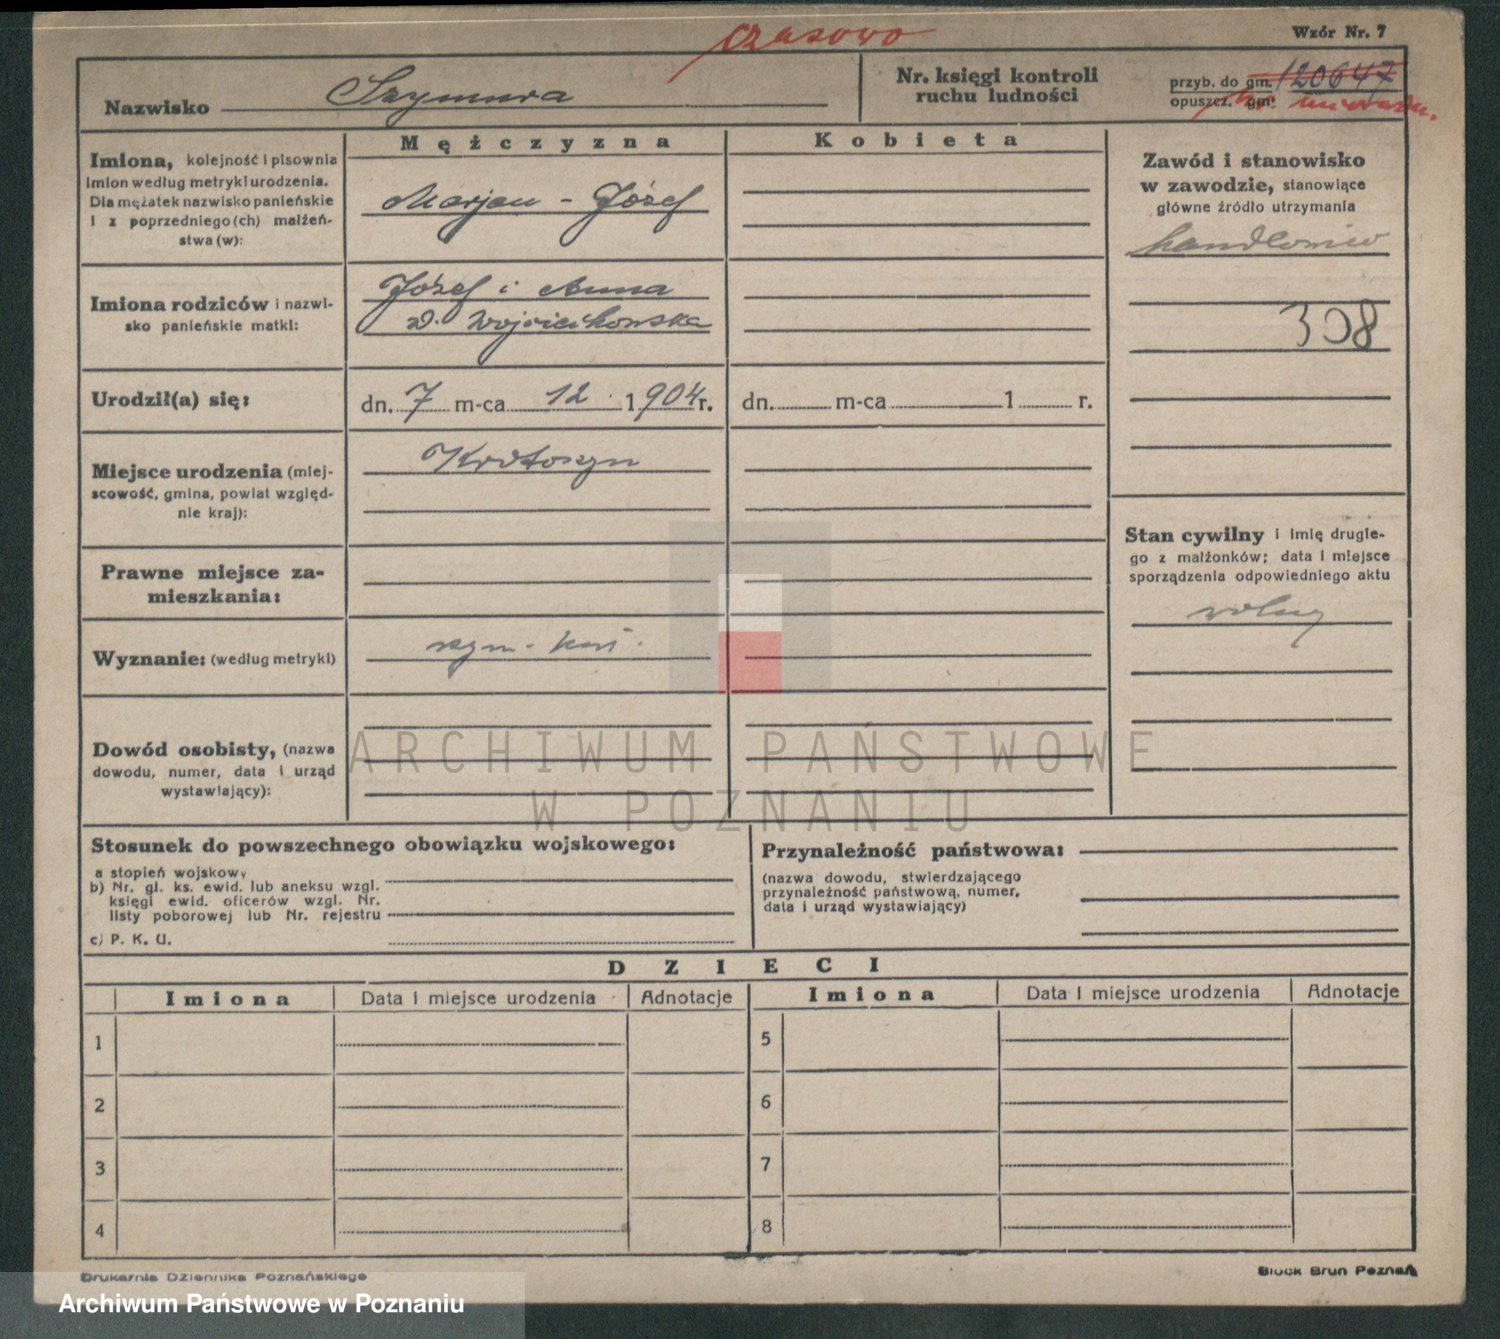 czasowo
Wzór Nr. 7
Nazwisko Szymura
Nr. księgi kontroli
ruchu ludności
przyb. do gm. 120647
opuszcz. gm.
Mężczyzna
Kobieta
Imiona, kolejność i pisownia
imion według metryki urodzenia.
Dla mężatek nazwisko panieńskie
i z poprzedniego (ch) małżeń-
stwa (w):
Marjan - Józef
Zawód i stanowisko
w zawodzie, stanowiące
główne źródło utrzymania
handlowiec
308
Imiona rodziców i nazwi-
sko panieńskie matki:
Józef i Anna
d. Wojciechowska
Urodził(a) się:
dn. 7 m-ca 12 1904 r.
dn. m-ca 1 r.
Miejsce urodzenia (miej-
scowość, gmina, powiat względ-
nie kraj):
Krotoszyn
Stan cywilny i imię drugie-
go z małżonków; data i miejsce
sporządzenia odpowiedniego aktu
wolny
Prawne miejsce za-
mieszkania:
Wyznanie: (według metryki)
rzym. - kat.
Dowód osobisty, (nazwa
dowodu, numer, data i urząd
wystawiający):
ARCHIWUM PAŃSTWOWE
W POZNANIU
Stosunek do powszechnego obowiązku wojskowego:
a stopień wojskowy
b) Nr. gł. ks. ewid. lub aneksu wzgl.
księgi ewid. oficerów wzgl. Nr.
listy poborowej lub Nr. rejestru
c) P. K. U.
Przynależność państwowa:
(nazwa dowodu, stwierdzającego
przynależność państwową, numer,
data i urząd wystawiający)
DZIECI
Imiona Data i miejsce urodzenia Adnotacje Imiona Data i miejsce urodzenia Adnotacje
1 5
2 6
3 7
4 8
Drukarnia Dziennika Poznańskiego
Block Brun Poznań
Archiwum Państwowe w Poznaniu